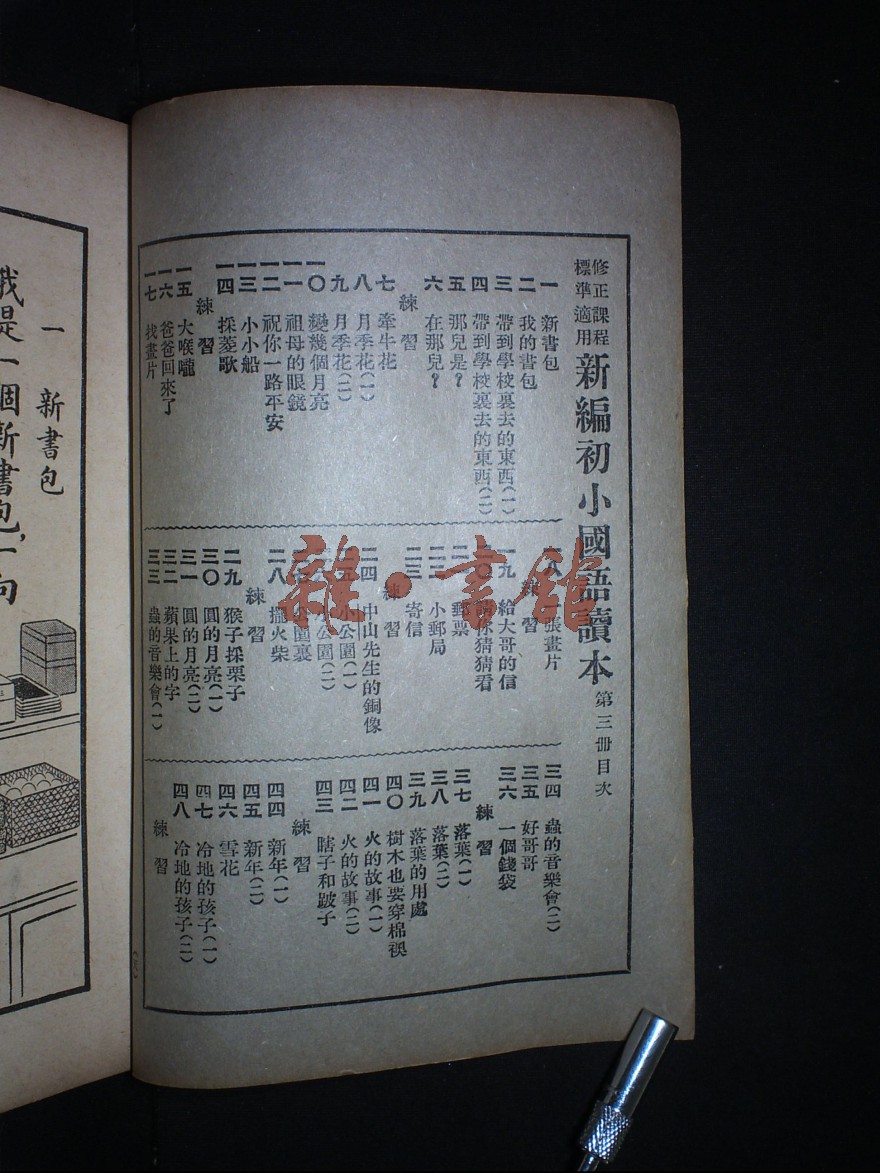 修正課程
標準適用
新編初小國語讀本 第三冊目次
一 新書包
二 我的書包
三 帶到學校裏去的東西(一)
四 帶到學校裏去的東西(二)
五 那兒是?
六 在那兒?
練習
七 牽牛花
八 月季花(一)
九 月季花(二)
一〇 變幾個月亮
一一 祖母的眼鏡
一二 祝你一路平安
一三 小小船
一四 採菱歌
練習
一五 大喉嚨
一六 爸爸回來了
一七 找畫片
一八 一張畫片
練習
一九 給大哥的信
二〇 請你猜猜看
二一 郵票
二二 小郵局
二三 寄信
練習
二四 中山先生的銅像
二五 小公園(一)
二六 小公園(二)
二七 公園裏
二八 擺火柴
練習
二九 猴子採栗子
三〇 圓的月亮(一)
三一 圓的月亮(二)
三二 蘋果上的字
三三 蟲的音樂會(一)
三四 蟲的音樂會(二)
三五 好哥哥
三六 一個錢袋
練習
三七 落葉(一)
三八 落葉(二)
三九 落葉的用處
四〇 樹木也要穿棉襖
四一 火的故事(一)
四二 火的故事(二)
四三 瞎子和跛子
練習
四四 新年(一)
四五 新年(二)
四六 雪花
四七 冷地的孩子(一)
四八 冷地的孩子(二)
練習
一 新書包
我是一個新書包,一向
雜·書館